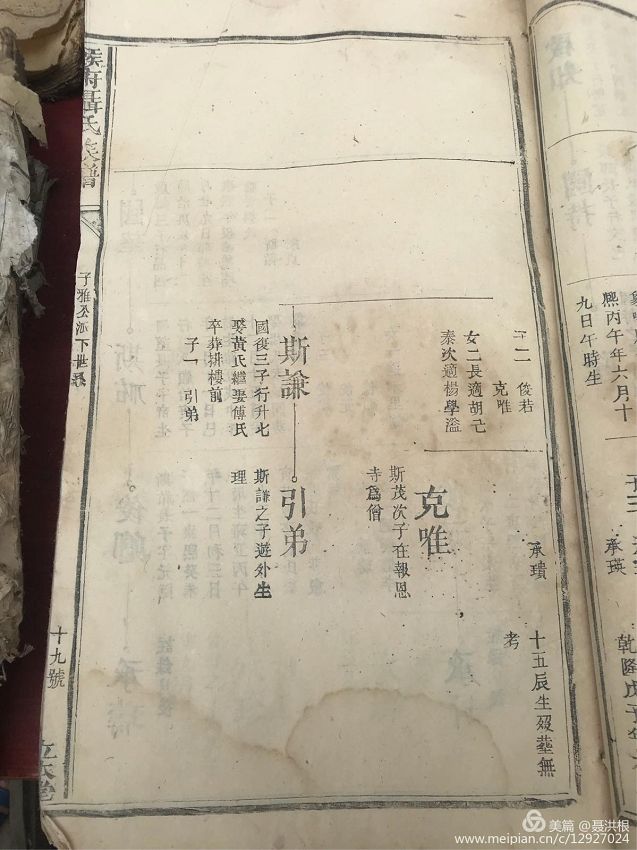 熙丙午年六月十
九日午時生
承瑛
乾隆戊子年
十五辰生歿塟無
考
承璝
子二
俊若
克唯
女二長適胡己
秦次適楊學溢
克唯
斯茂次子在報恩
寺爲僧
斯謙
國復三子行升七
娶黃氏繼妻傅氏
卒葬排樓前
子一
引弟
引弟
斯謙之子遊外生
理
聶氏族譜
十九號
美篇 @聂洪根
www.meipian.cn/c/12927024